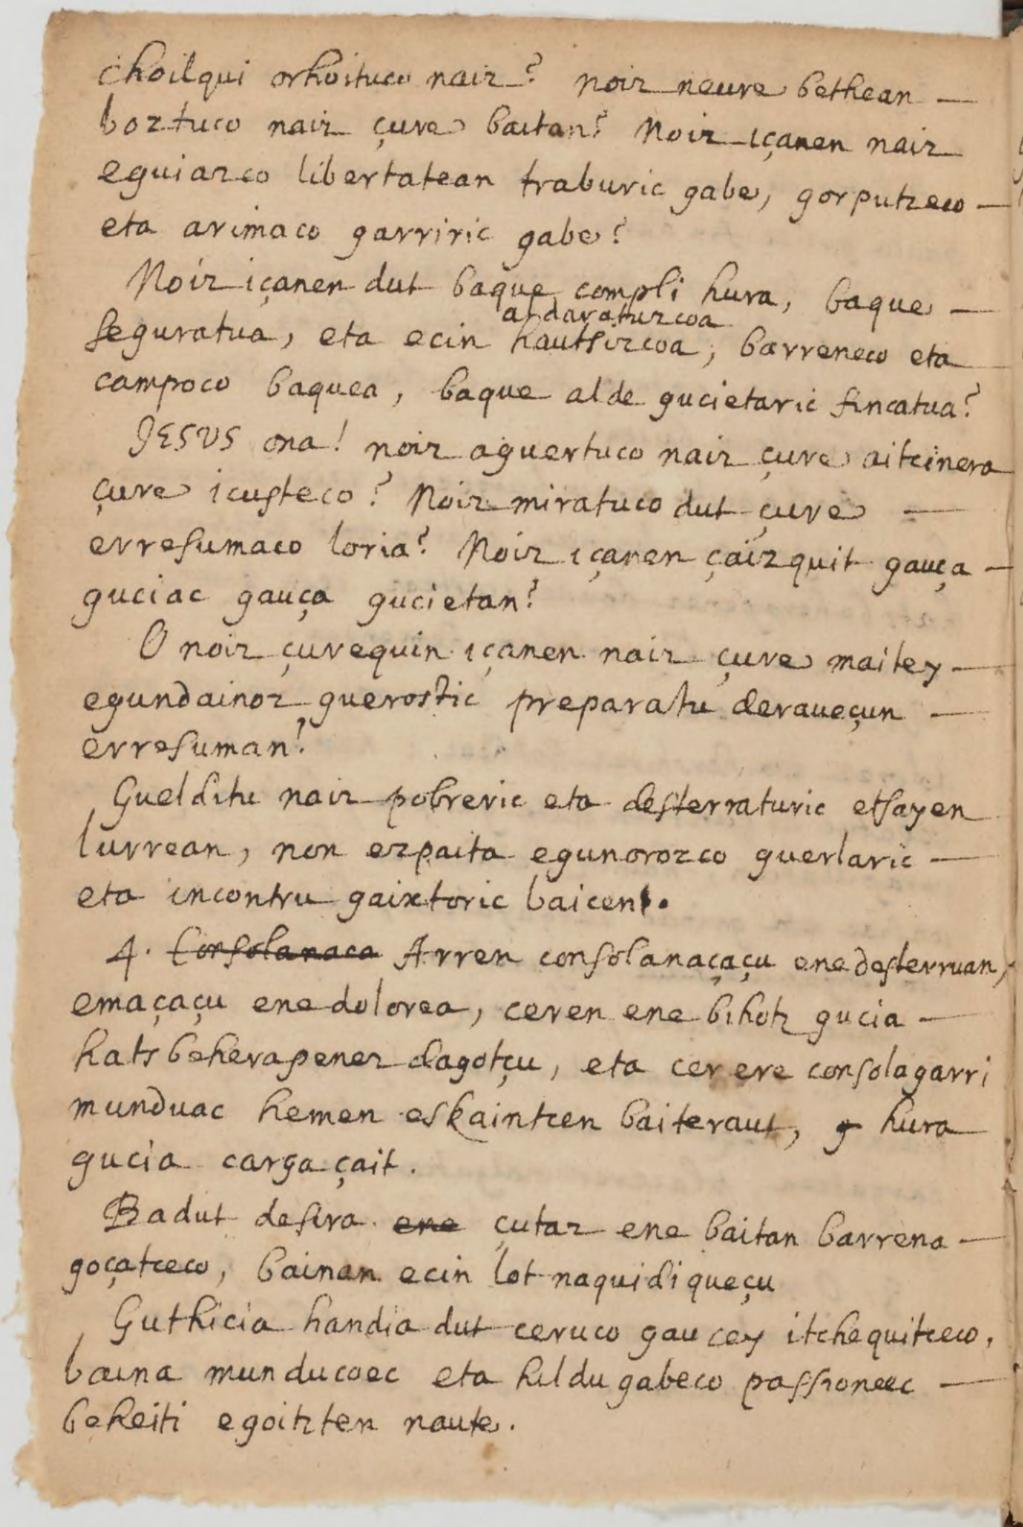 choilqui orhoituco naiz? noiz neure bethean —
boztuco naiz çure baitan? Noiz içanen naiz
eguiazco libertatean traburic gabe, gorputzeco —
eta arimaco garriric gabe?
Noiz içanen dut baque compli hura, baque —
andaraturcoa
seguratua, eta ecin hautsizcoa, barreneco eta
campoco baquea, baque alde gucietaric fincatua?
JESUS ona! noiz aguertuco naiz çure aitcinera
çure icusteco? Noiz miratuco dut çure —
erresumaco loria? Noiz içanen çaizquit gauça —
guciac gauça gucietan?
O noiz çurequin içanen naiz çure maitey —
egundainoz gueroztic preparatu deraueçun —
erresuman?
Guelditu naiz pobreric eta desterraturic etsayen
lurrean, non ezpaita egunorozco guerlaric —
eta incontru gaixtoric baicen.
4. Consolanaca Arren consolanaçaçu ene desterruan,
emaçaçu ene dolorea, ceren ene bihotz gucia —
hats beherapenez dagotçu, eta cer ere consolagarri
munduac hemen eskaintcen baiteraut, hura
gucia carga çait.
Badut desira ene çutaz ene baitan barrena —
goçatceco, bainan ecin lot naquidiqueçu
Guthicia handia dut ceruco gaucey itchequitceco,
baina munducoec eta hildu gabeco passioneec —
beheiti egoitzten naute.